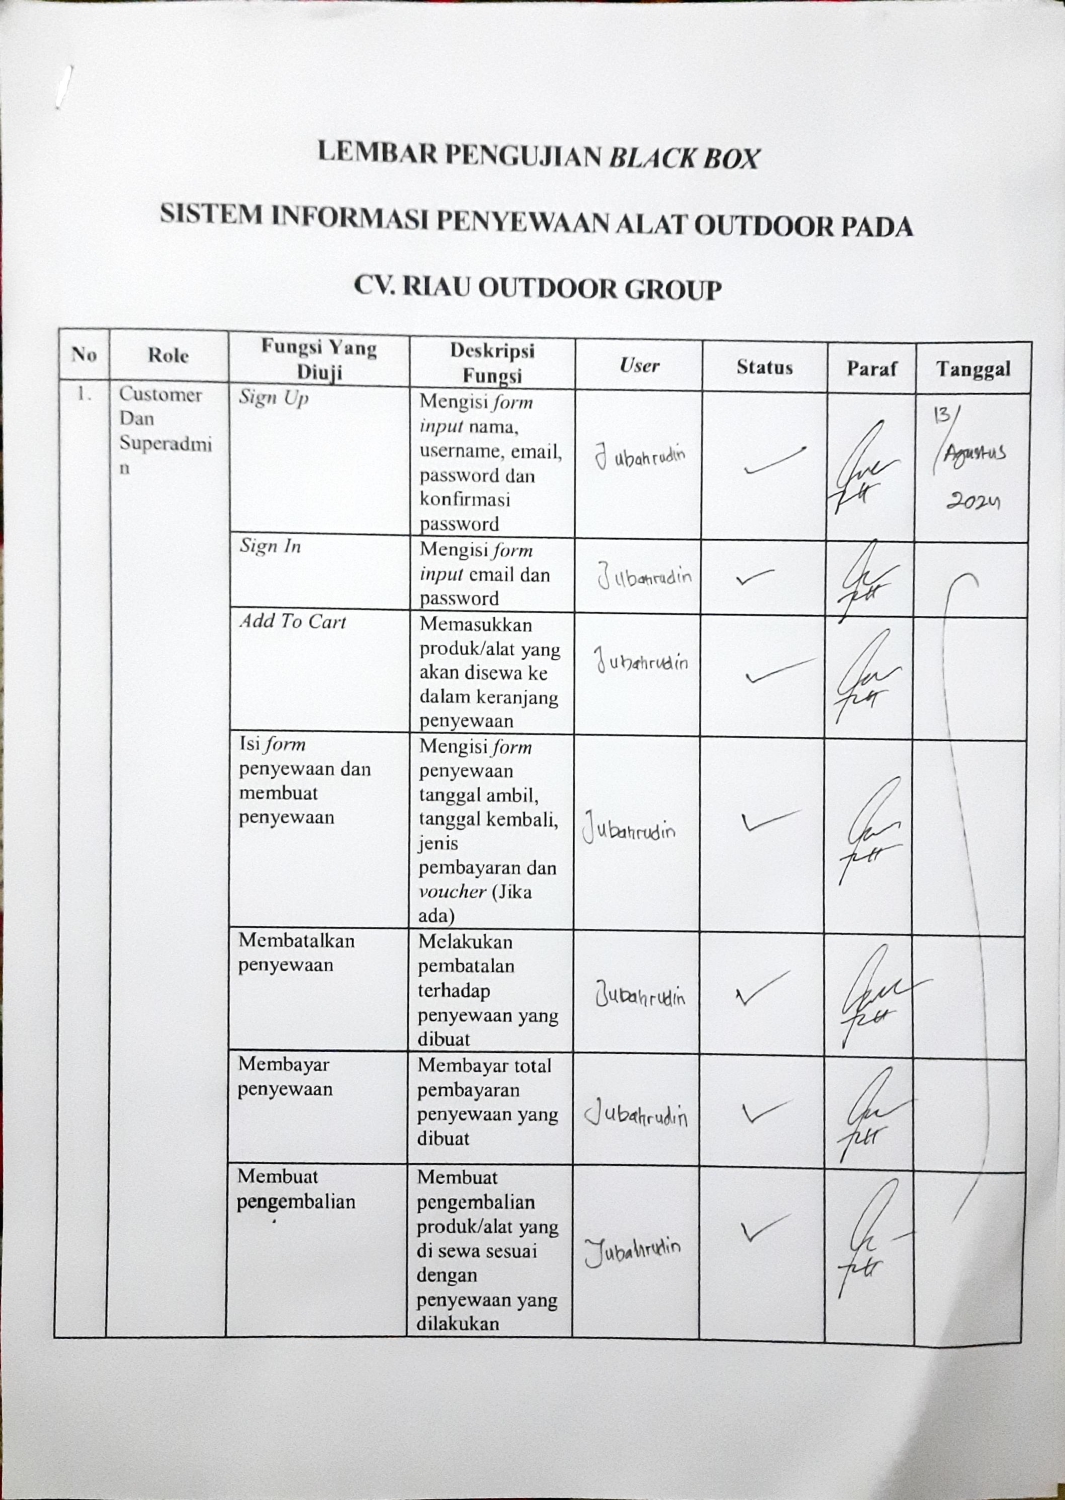 LEMBAR PENGUJIAN BLACK BOX
SISTEM INFORMASI PENYEWAAN ALAT OUTDOOR PADA
CV. RIAU OUTDOOR GROUP
No
Role
Fungsi Yang
Diuji
Deskripsi
Fungsi
User
Status
Paraf
Tanggal
1.
Customer
Dan
Superadmi
n
Sign Up
Mengisi form
input nama,
username, email,
password dan
konfirmasi
password
Jubahrudin
13/
Agustus
2024
Sign In
Mengisi form
input email dan
password
Jubahrudin
Add To Cart
Memasukkan
produk/alat yang
akan disewa ke
dalam keranjang
penyewaan
Jubahrudin
Isi form
penyewaan dan
membuat
penyewaan
Mengisi form
penyewaan
tanggal ambil,
tanggal kembali,
jenis
pembayaran dan
voucher (Jika
ada)
Jubahrudin
Membatalkan
penyewaan
Melakukan
pembatalan
terhadap
penyewaan yang
dibuat
Jubahrudin
Membayar
penyewaan
Membayar total
pembayaran
penyewaan yang
dibuat
Jubahrudin
Membuat
pengembalian
Membuat
pengembalian
produk/alat yang
di sewa sesuai
dengan
penyewaan yang
dilakukan
Jubahrudin